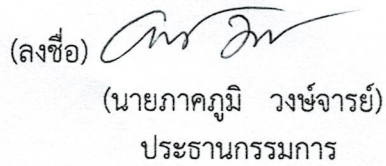 (ลงชื่อ)
(นายภาคภูมิ วงษ์จารย์)
ประธานกรรมการ